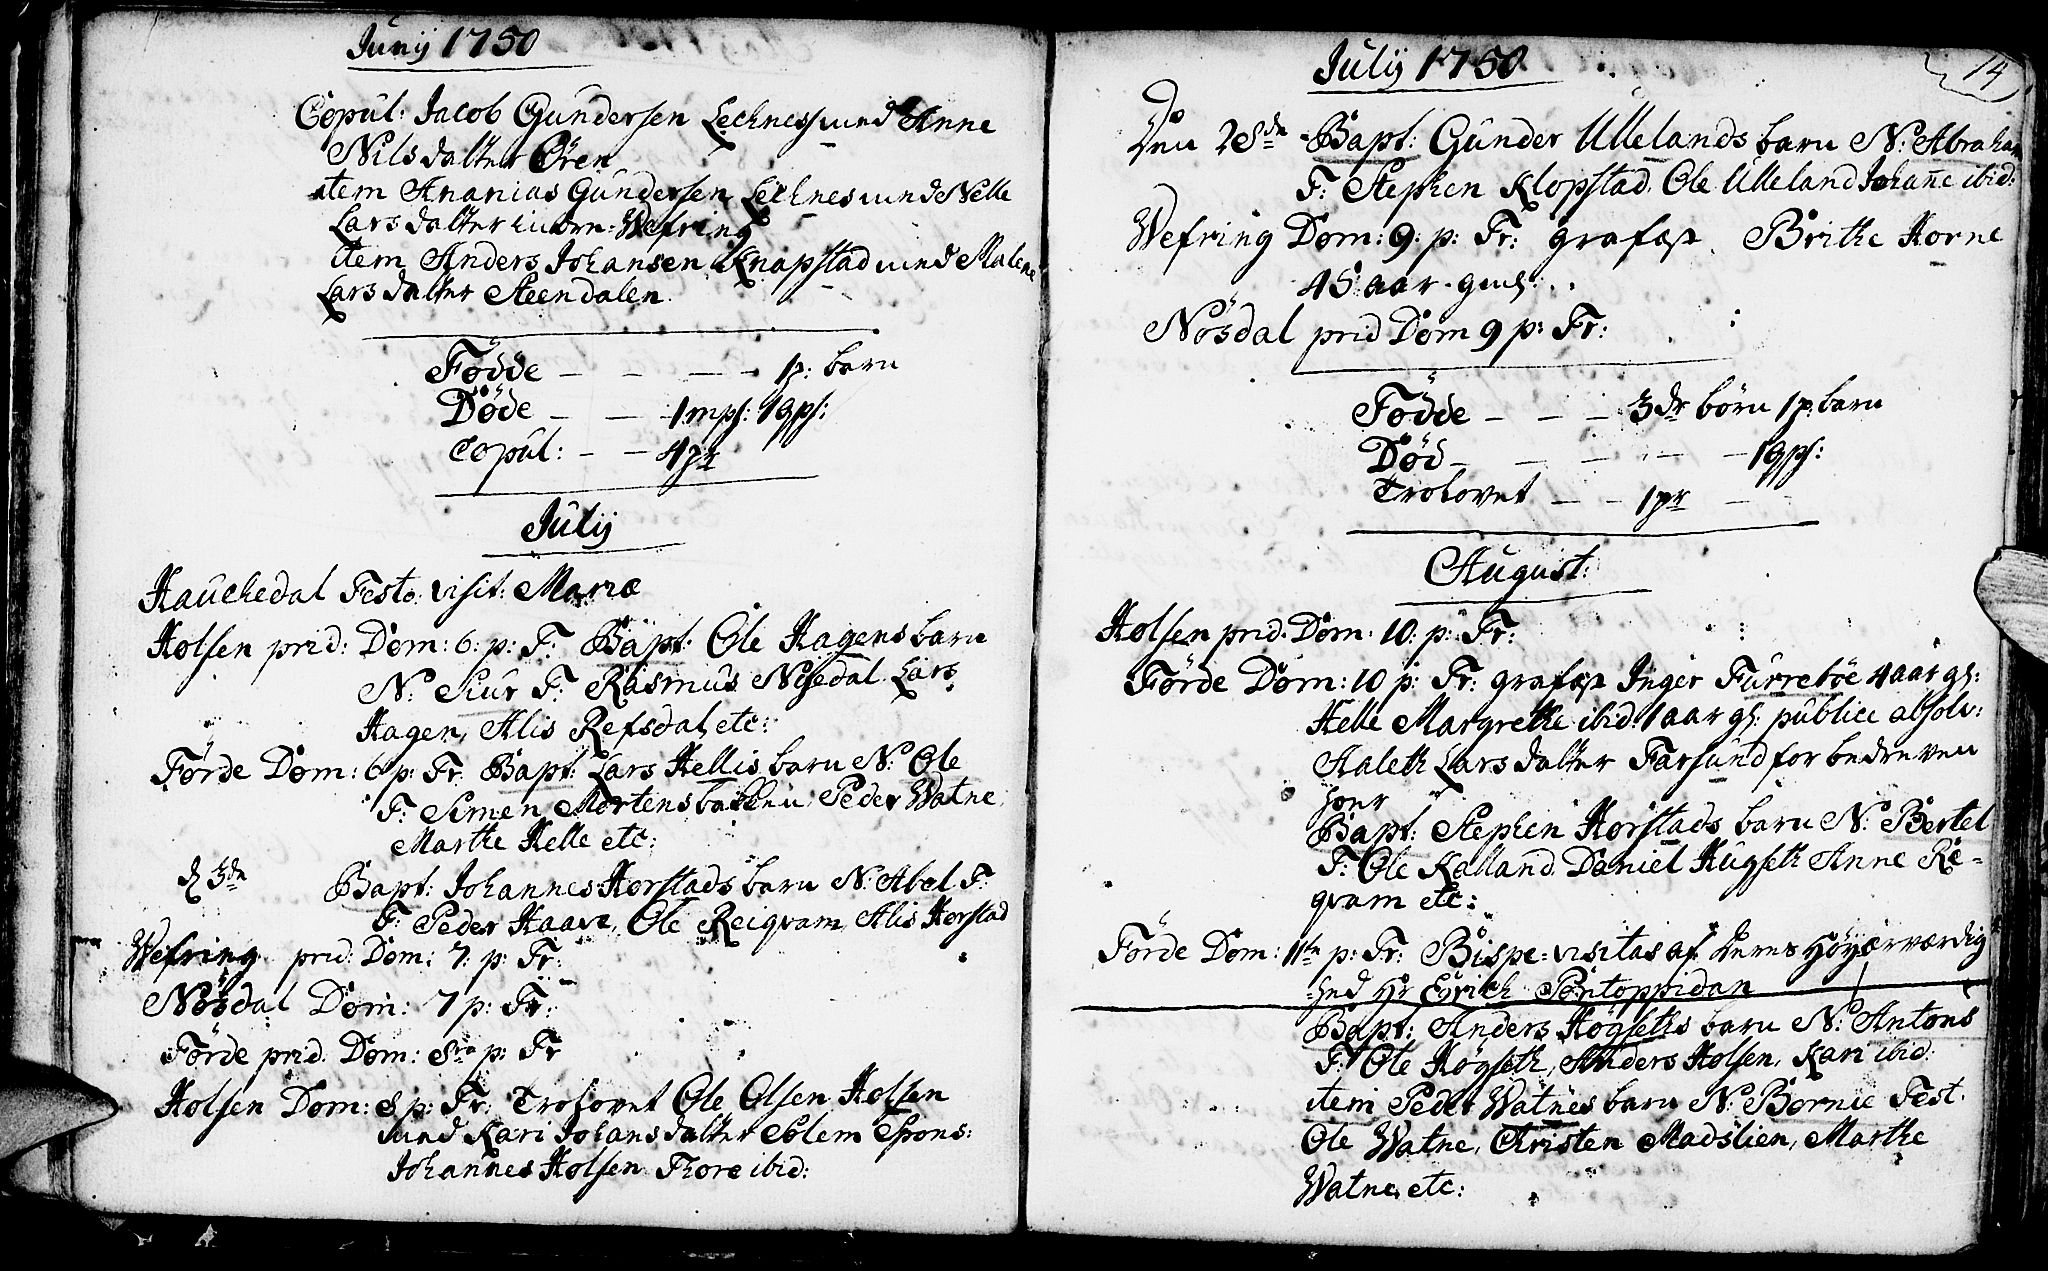 Junij 1750
Copul: Jacob Gundersen Lechnes med Anne
Nilsdatter Ören
item Ananias Gundersen Lechnes med Nelle
Larsdatter Wefring
item Anders Johansen Knapstad med Malene
Larsdatter Steendalen.
Födde – – – – 1 p: barn
Döde – – 1 mps: 1 qps:
Copul: – – 4 pr
Julij
Hauchedal Festo visit: Mariæ
Holsen prid: Dom: 6: p: F: Bapt: Ole Hagens barn
N: Siur F: Rasmus Nisedal. Lars
Hagen, Alis Refsdal, etc:
Förde Dom: 6 p: Fr: Bapt: Lars Hellis barn N: Ole
F: Simen Mortensbakken Peder Watne,
Marthe Helle etc:
d 3de Bapt: Johannes Horstads barn N: Abel F:
F: Peder Haave, Ole Reiqvam, Alis Horstad
Wefring prid: Dom: 7: p: Fr:
Nösdal Dom: 7 p: Fr:
Förde prid. Dom: 8va p: Fr
Holsen Dom: 8 p: Fr: Trolovet Ole Olsen Holsen
med Kari Johansdatter Solem Spons:
Johannes Holsen Thore ibid:
Julij 1750
14
Den 28de Bapt: Gunder Ullelands barn N: Abraham
F: Stephen Klopstad. Ole Ulleland Johanne ibid:
Wefring Dom: 9: p: Fr: grafæst. Brithe Horne
45 aar gml:
Nösdal prid Dom 9 p: Fr:
Födde – – – 3de börn 1 p: barn
Död – – – – – 1 qps:
Trolovet – – 1 pr –
August:
Holsen prid. Dom: 10: p: Fr:
Förde Dom: 10 p: Fr: grafæst Inger Furreböe 4 aar gl:
Helle Margrethe ibid: 1 aar gl: publice absolv:
Maleth Larsdatter Farsund for bedreven
hoer
Bapt: Stephen Horstads barn N: Bertel
F: Ole Kalland. Daniel Hugseth Anne Re-
qvam etc:
Förde Dom: 11te p: Fr: Bispe-visitas af Deres Höyærværdig
-hed Hr Eyrich Pontoppidan
Bapt: Anders Högseths barn N: Antons
F: Ole Högseth, Anders Holsen, Kari ibid:
item Peder Watnes barn N: Bornie Test.
Ole Watne, Christen Madslien, Marthe
Watne, etc: